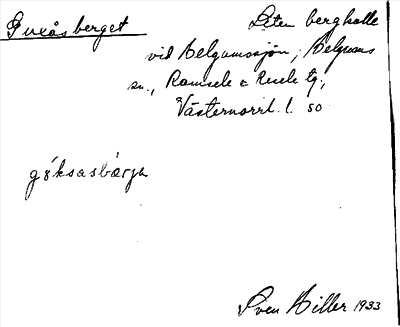 Guxåsberget Liten berghalle
vid Helgumssjön; Helgums
sn., Ramsele o Resele tg;
Västernorrl. l. so
Sven Hiller 1933